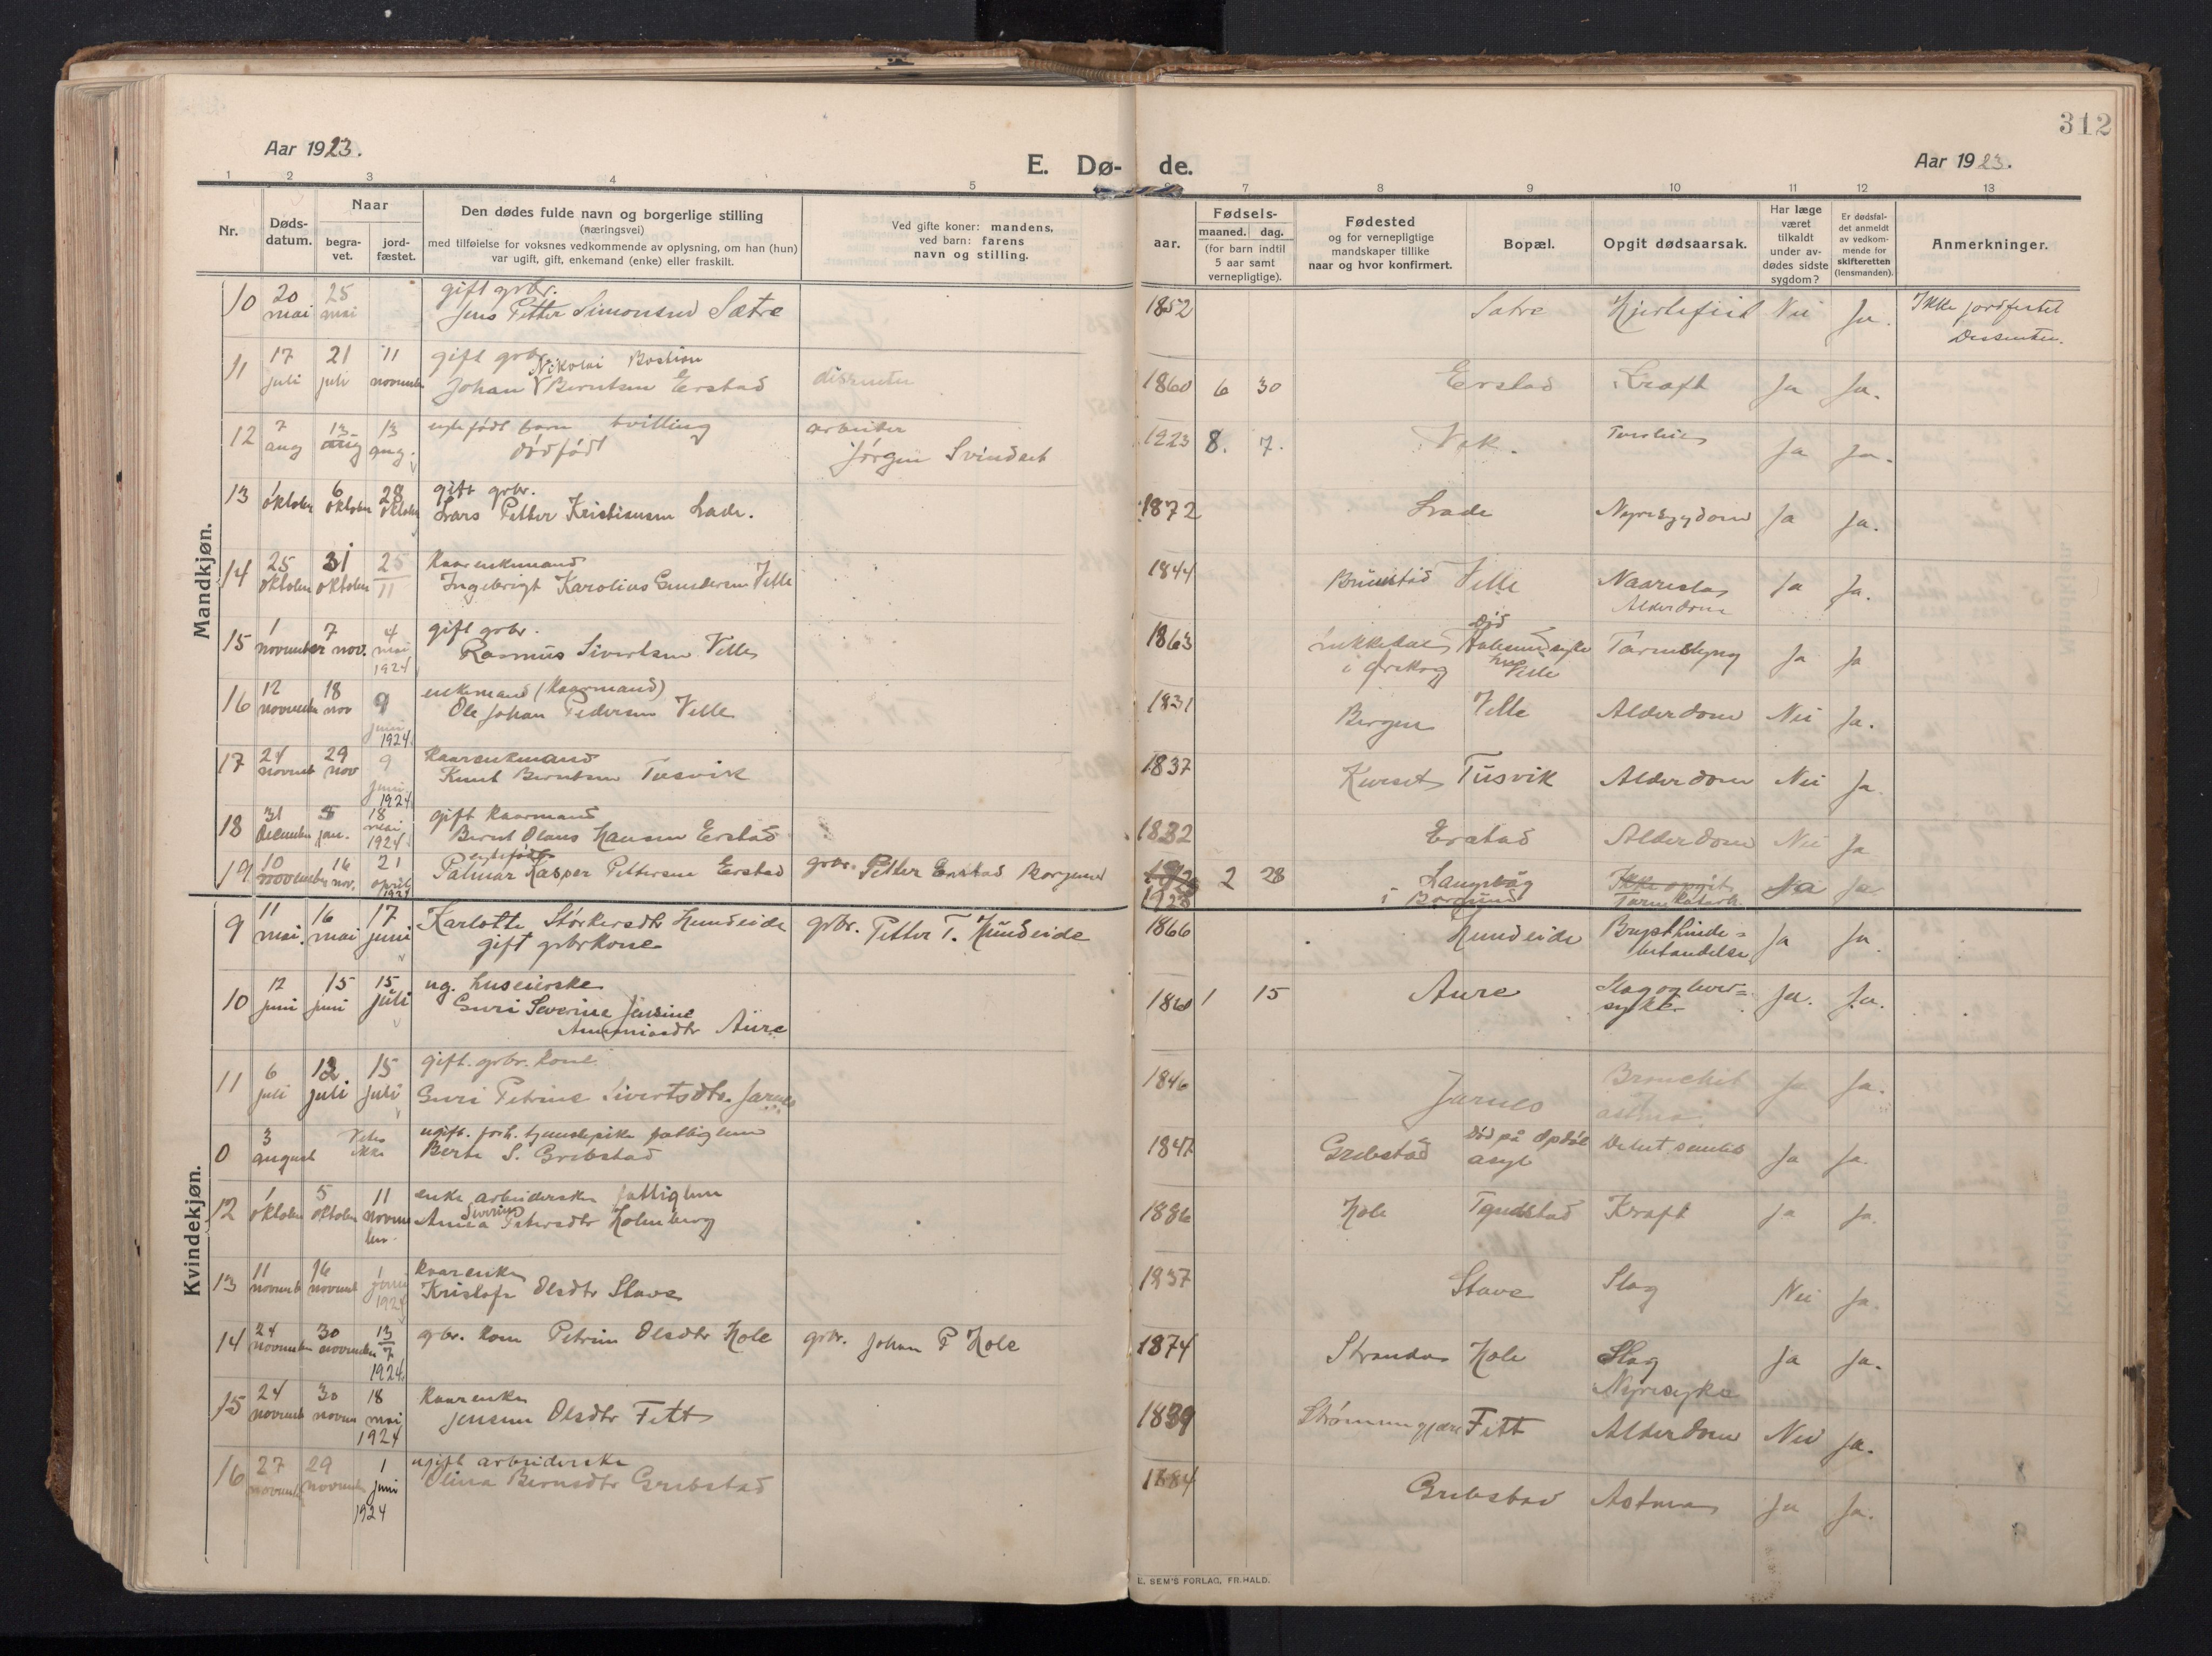 312
Aar 1923.
E. Dø- de.
Aar 1923.
1 2 3 4 5 6 7 8 9 10 11 12 13
Nr.
Døds-
datum.
Naar
begra-
vet.
jord-
fæstet.
Den dødes fulde navn og borgerlige stilling
(næringsvei)
med tilføielse for voksnes vedkommende av oplysning, om han (hun)
var ugift, gift, enkemand (enke) eller fraskilt.
Ved gifte koner: mandens,
ved barn: farens
navn og stilling.
aar.
Fødsels-
maaned. dag.
(for barn indtil
5 aar samt
vernepligtige).
Fødested
og for vernepligtige
mandskaper tillike
naar og hvor konfirmert.
Bopæl.
Opgit dødsaarsak.
Har læge
været
tilkaldt
under av-
dødes sidste
sygdom?
Er dødsfal-
det anmeldt
av vedkom-
mende for
skifteretten
(lensmanden).
Anmerkninger.
Mandkjøn.
10 20 mai 25 mai gift grbr.
Jens Petter Simonsen Sætre 1852 Satre Hjertefeil Nei Ja. Ikke jordfestet
Dissenter.
11 17 juli 21 juli 11 november gift grbr. Nikolai Bastian
Johan Berntsen Erstad dissenter 1860 6 30 Erstad Kraft Ja Ja.
12 7 aug 13 aug 13 aug. egtefødt barn tvilling
dødfødt arbeider
Jørgen Svindset 1923 8. 7. Vik. Ja Ja.
13 1 oktober 6 oktober 28 oktober gift grbr.
Lars Petter Kristiansen Lade. 1872 Lade Nyresygdom Ja Ja.
14 25 oktober 31 oktober 25 11 Kaarenkemand
Ingebrigt Karolius Gundersen Velle 1844 Velle
Alderdom Ja Ja.
15 1 november 7 nov. 4 mai 1924 gift grbr.
Rasmus Sivertsen Velle 1863 i Ørskog Død
Aalesund syke
hus Velle Tarmslyng Ja Ja
16 12 november 18 nov 9 juni 1924 enkemand (Kaarmand)
Ole Johan Pedersen Velle 1831 Bergen Velle Alderdom Nei Ja.
17 24 novemb 29 nov 9 juni 1924 Kaarenkemand
Knut Berntsen Tusvik 1837 Tusvik Alderdom Nei Ja.
18 31 december 5 jan. 18 mai 1924 gift Kaarmand
Bernt Olaus Hansen Erstad 1832 Erstad Alderdom Nei Ja
19 10 november 16 nov. 21 april 1924 egtefødt
Palmar Kasper Pettersen Erstad grbr. Petter Erstad Borgund 1923 2 28 Langevåg
i Borgund Ikke opgit
Tarmkatarh. Ja
Kvindekjøn.
9 11 mai. 16 mai 17 juni Karlotte Størkersdtr Hundeide
gift grbrkone grbr. Petter T. Hundeide 1866 Hundeide Brysthinde=
betændelse Ja Ja.
10 12 juni 15 juni 15 juli ug. huseierske
Guri Severine Jensine
Ananiasdtr Aure 1860 1 15 Aure Slag og lever=
syke Ja. Ja.
11 6 juli 12 juli 15 juli gift. grbr. kone
Guri Petrine Sivertsdtr. Jarnes 1846 Jarnes Bronchit
astma Ja Ja.
0 3 august Vites ikke ugift. forh. tjenestepike fattiglem
Berte S. Grebstad 1847 Grebstad død på Opdøl
asyl Ja Ja.
12 1 oktober 5 oktober 11 november enke arbeiderske fattiglem
Severine
Anna Petersdtr Holmberg 1886 Hole Tyndstad Kraft Ja Ja.
13 11 novemb 16 novemb 1 juni 1924 Kaarenke
Olsdtr Stave 1837 Stave Slag Nei Ja.
14 24 november 30 november 13/7 1924 grbr. kone Petrine Olsdtr Hole grbr. Johan P Hole 1874 Stranda Hole Slag
Nyresyke Ja Ja.
15 24 novemb 30 novem 18 mai 1924 Kaarenke
Jensine Olsdtr Fett 1839 Fett Alderdom Nei Ja.
16 27 novemb 29 novemb 1 juni 1924 ugift arbeiderske
Olina Berntsdtr Grebstad 1884 Grebstad Astma Ja Ja.
E. SEM'S FORLAG, FR.HALD.